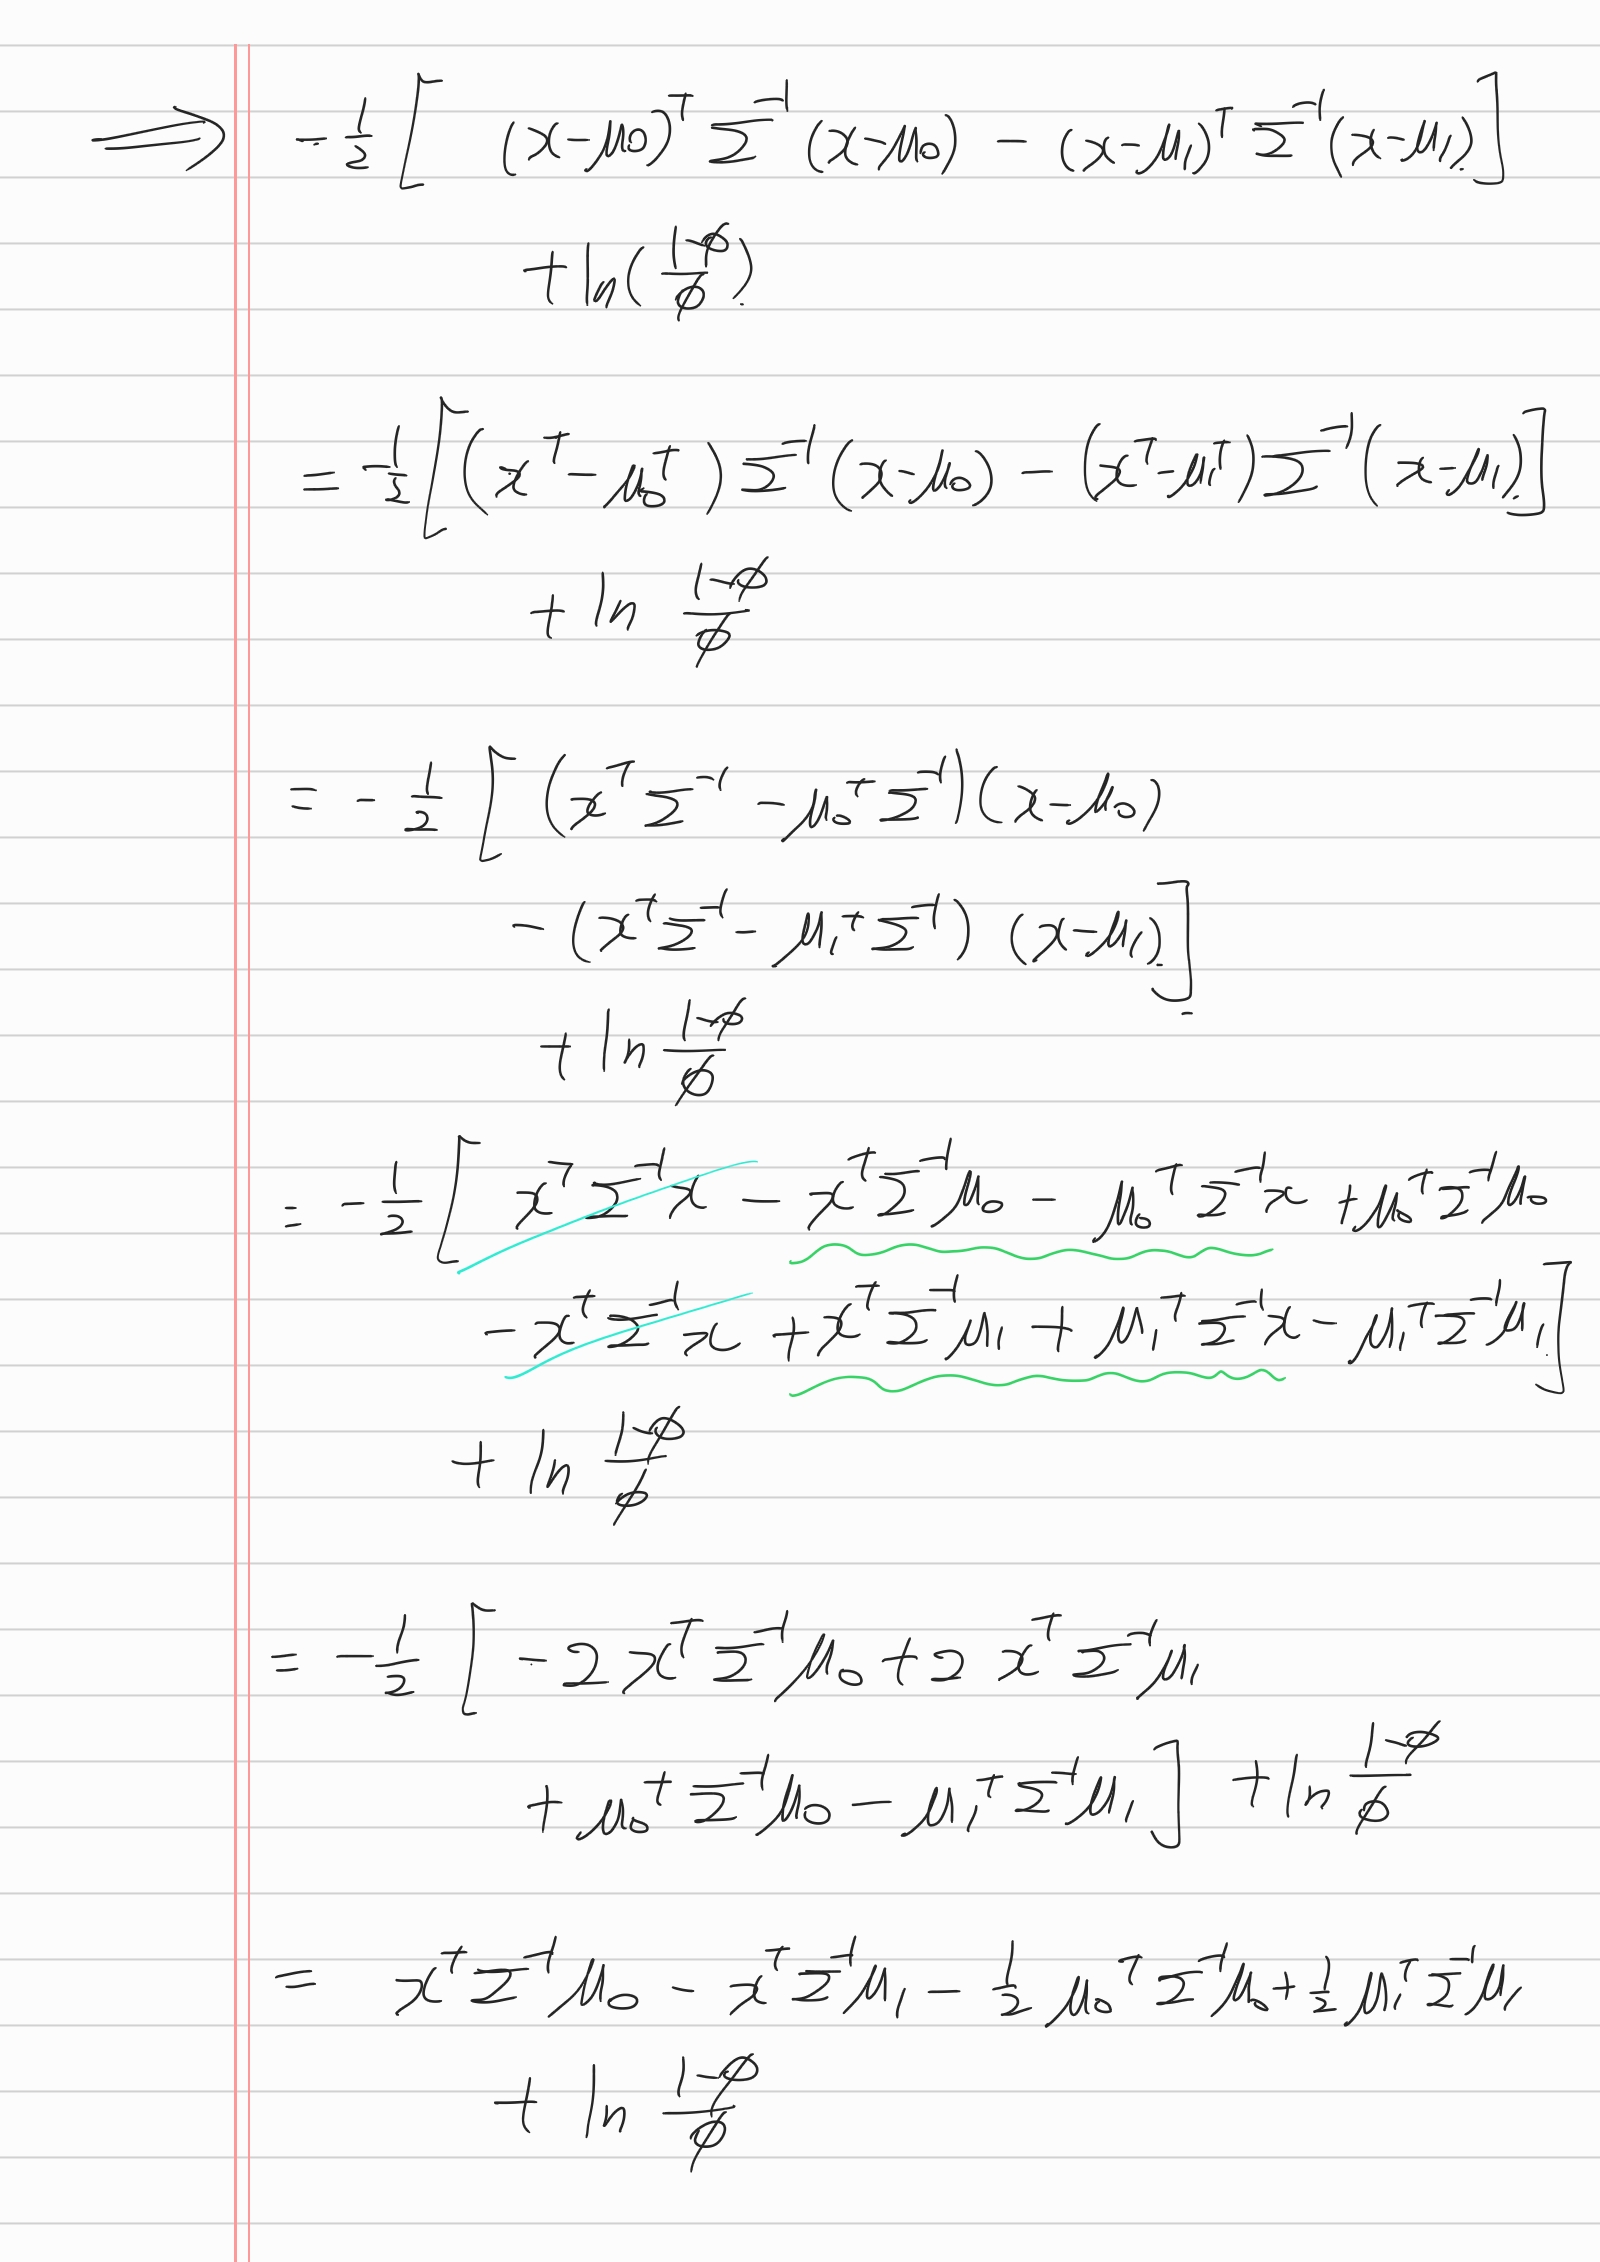 ⟹ -½[ (x-μ₀)ᵀ Σ⁻¹ (x-μ₀) - (x-μ₁)ᵀ Σ⁻¹ (x-μ₁)]
+ ln((1-φ)/φ)
= -½[(xᵀ - μ₀ᵀ) Σ⁻¹ (x-μ₀) - (xᵀ-μ₁ᵀ) Σ⁻¹ (x-μ₁)]
+ ln (1-φ)/φ
= -½[ (xᵀ Σ⁻¹ - μ₀ᵀ Σ⁻¹)(x-μ₀)
- (xᵀ Σ⁻¹ - μ₁ᵀ Σ⁻¹) (x-μ₁)]
+ ln (1-φ)/φ
= -½[ xᵀ Σ⁻¹ x - xᵀ Σ⁻¹ μ₀ - μ₀ᵀ Σ⁻¹ x + μ₀ᵀ Σ⁻¹ μ₀
- xᵀ Σ⁻¹ x + xᵀ Σ⁻¹ μ₁ + μ₁ᵀ Σ⁻¹ x - μ₁ᵀ Σ⁻¹ μ₁]
+ ln (1-φ)/φ
= -½[ -2 xᵀ Σ⁻¹ μ₀ + 2 xᵀ Σ⁻¹ μ₁
+ μ₀ᵀ Σ⁻¹ μ₀ - μ₁ᵀ Σ⁻¹ μ₁] + ln (1-φ)/φ
= xᵀ Σ⁻¹ μ₀ - xᵀ Σ⁻¹ μ₁ - ½ μ₀ᵀ Σ⁻¹ μ₀ + ½ μ₁ᵀ Σ⁻¹ μ₁
+ ln (1-φ)/φ